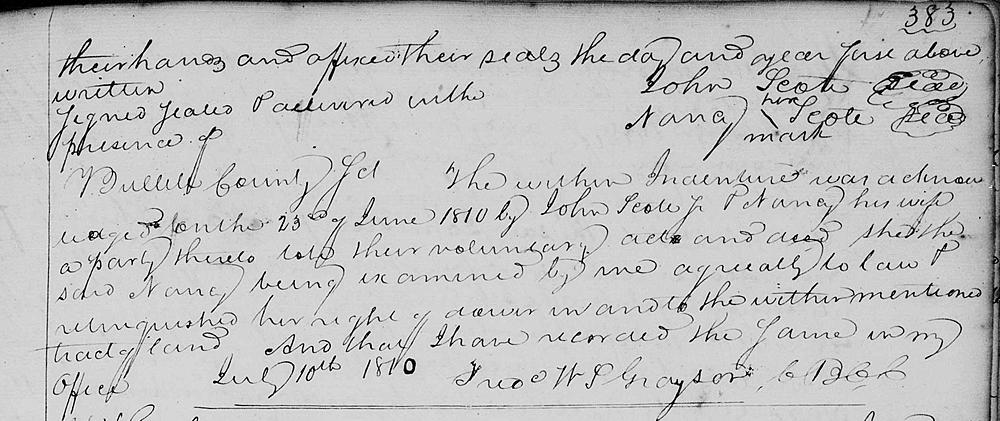 383
their hands and affixed their seals the day and year first above
written
John Scott Seal
Signed Sealed & delivered in the
presence of
Nancy her Scott Seal
mark
Bullitt County Sct The within Indenture was acknow
ledged on the 23rd of June 1810 by John Scott Jr & Nancy his wife
a party thereto to be their voluntary act and deed she the
said Nancy being examined by me agreeably to law &
relinquished her right of dower in and to the within mentioned
tract of land And that I have recorded the same in my
Office July 10th 1810 Fredc W S Grayson C B C C